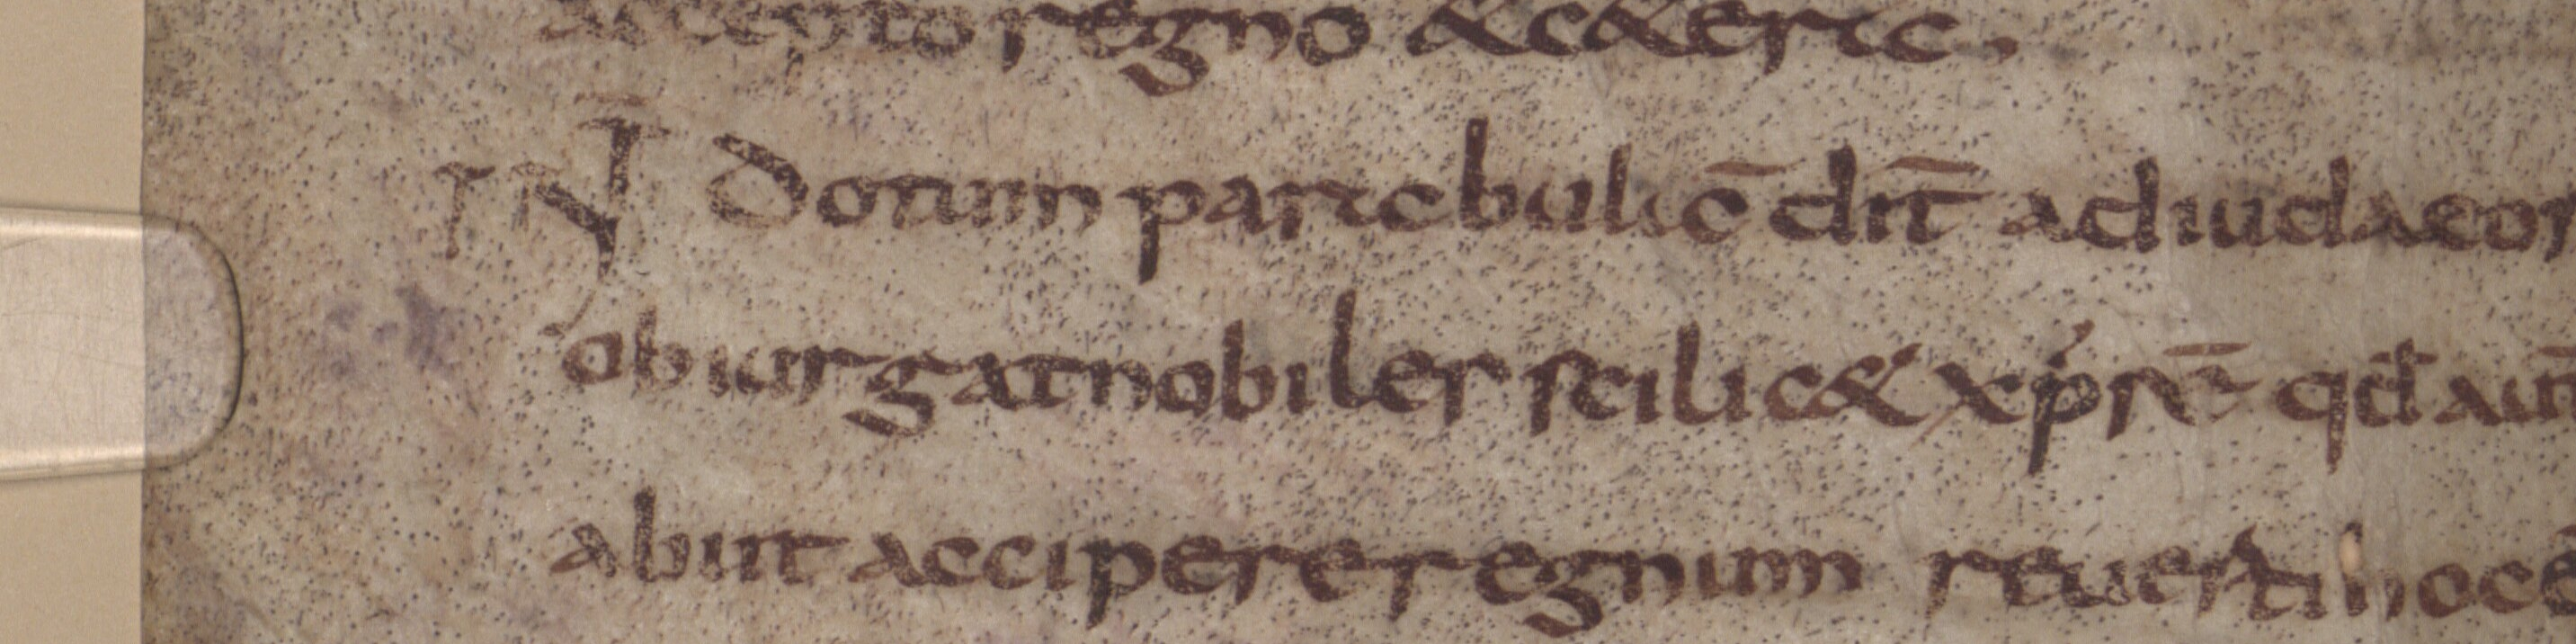 accepto regno &c&eris.
IN dotum partebulic̄ dn̄t adiudaeor
obiurgat nobiles scilic& xp̄s n̄ qđ aut̄
abiit accipere regnum reuerti hoc ē